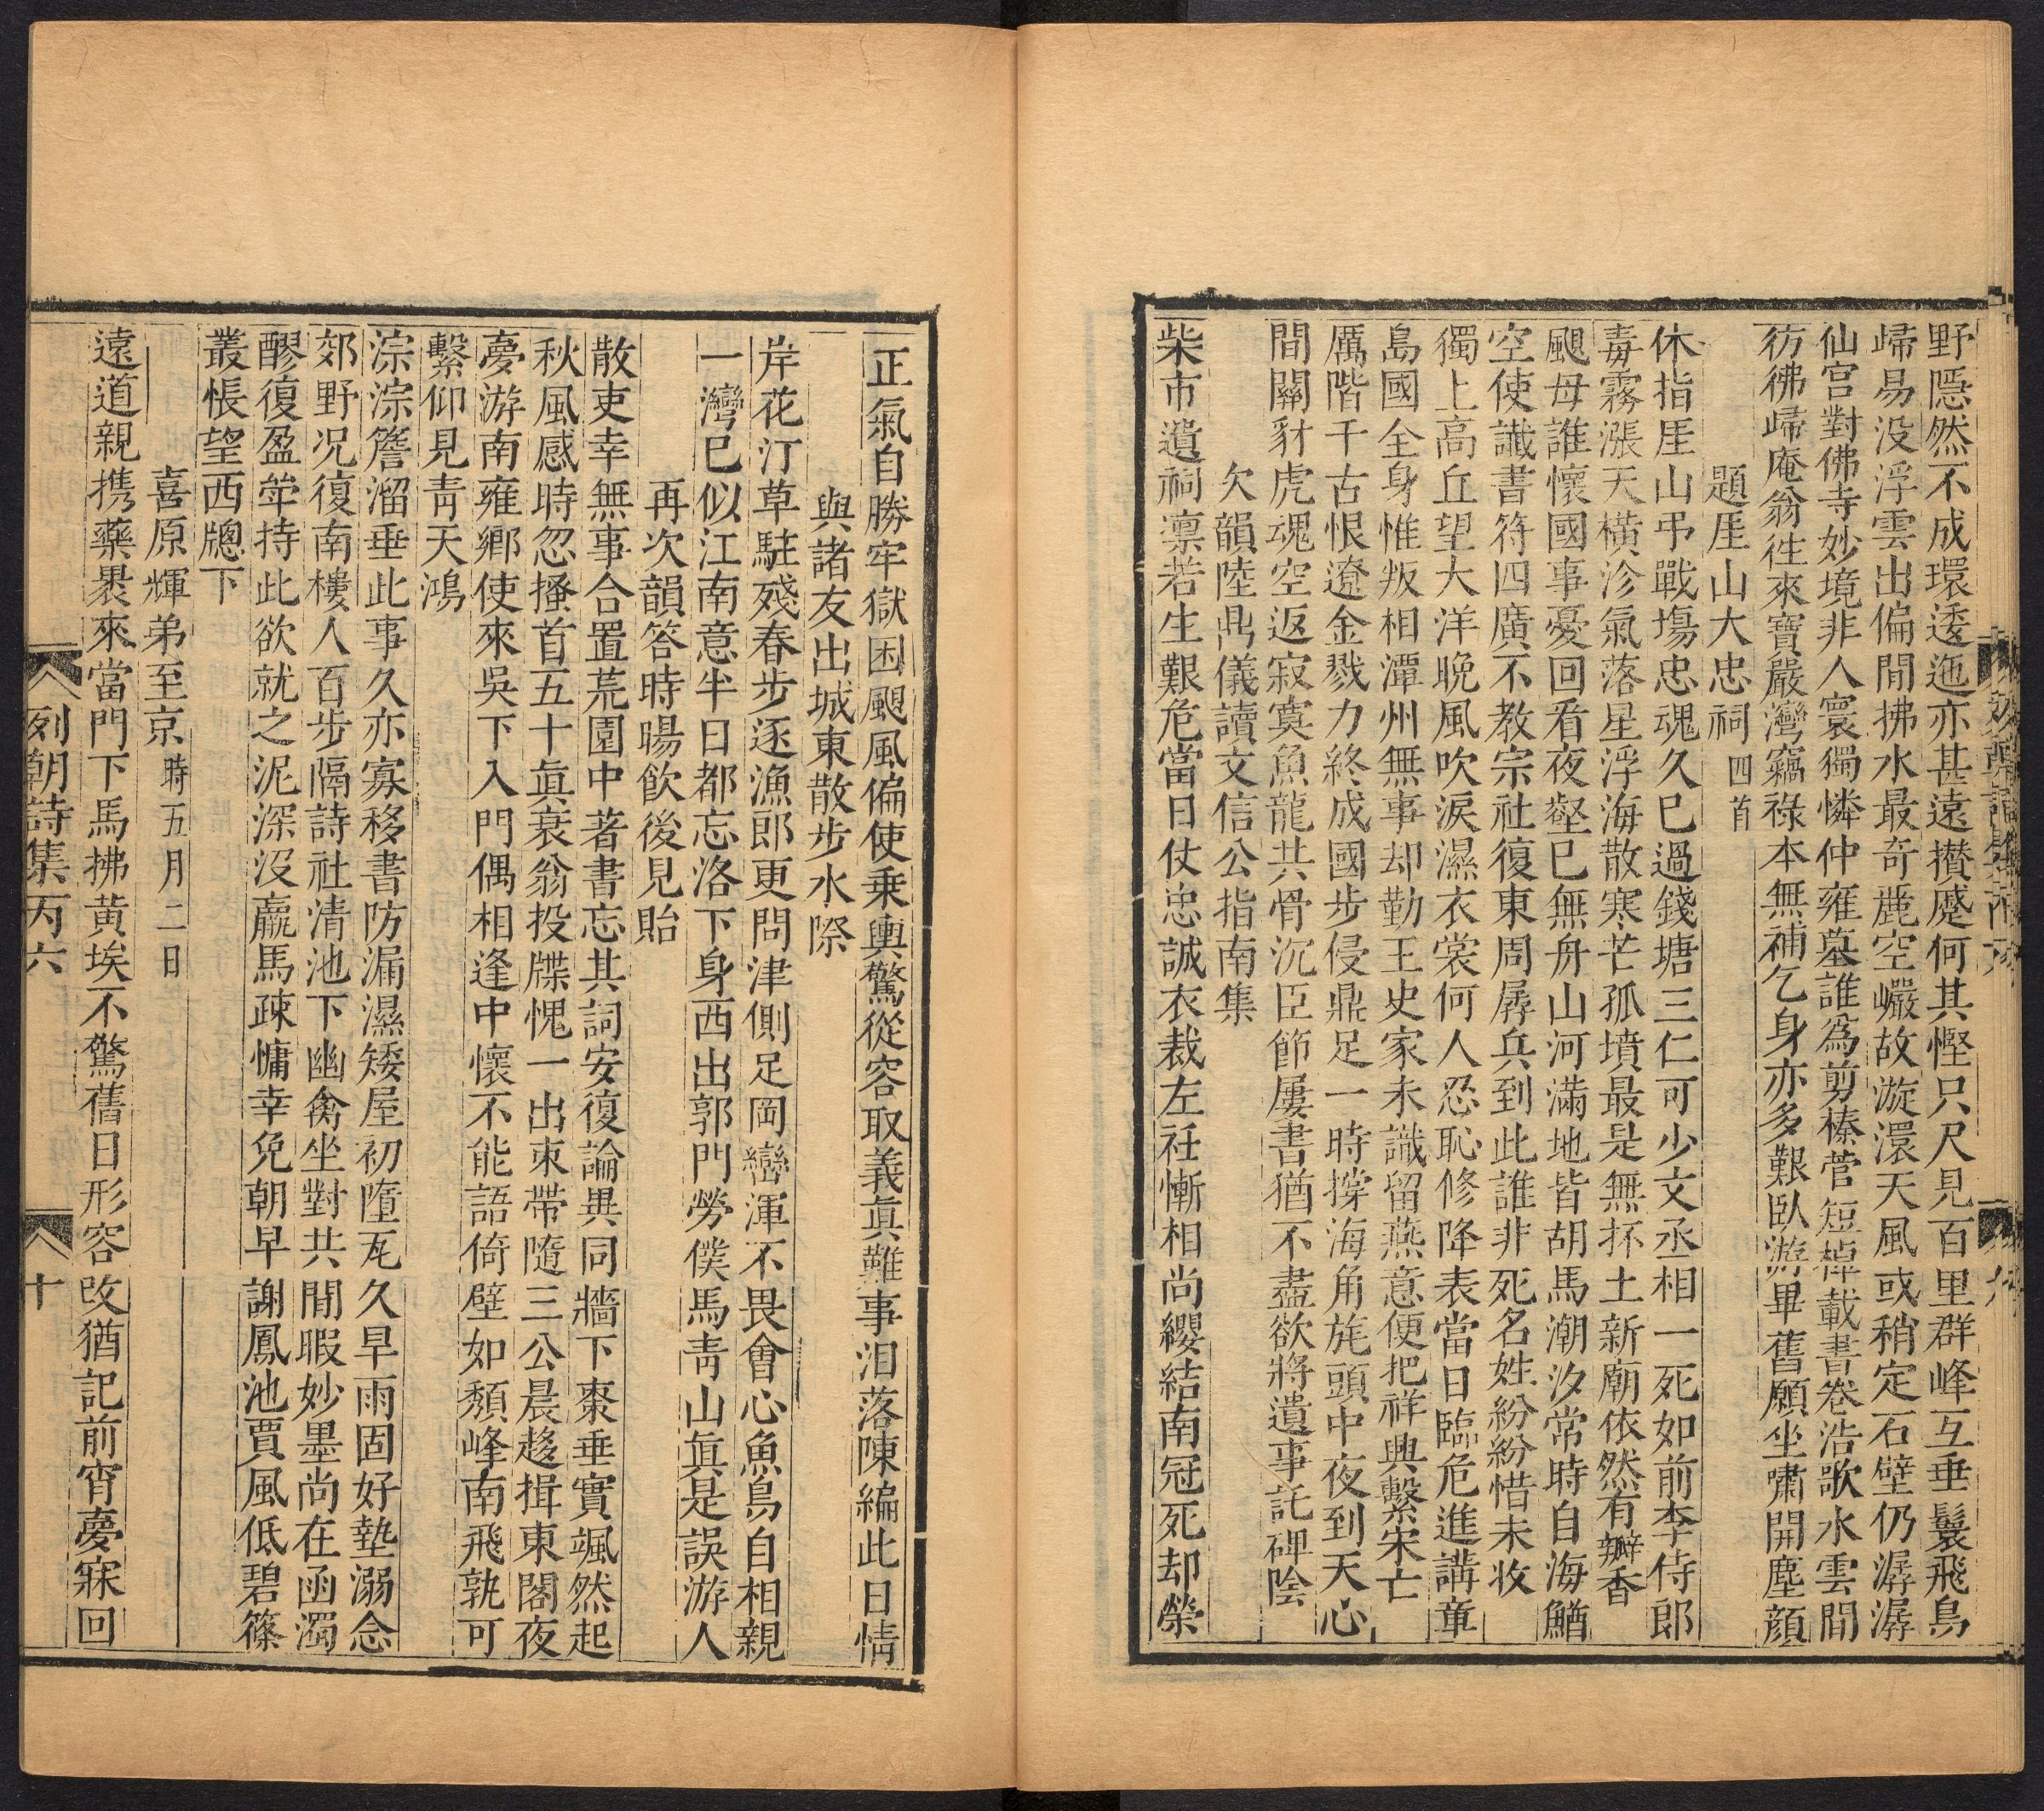 野隱然不成環逶迤亦甚遠攢蹙何其慳只尺見百里群峰互垂鬟飛鳥
歸易没浮雲出偏閒拂水最奇麗空巗故漩澴天風或稍定石壁仍潺潺
仙宫對佛寺妙境非人寰獨憐仲雍墓誰爲剪榛菅短棹載書卷浩歌水雲間
彷彿歸庵翁徃來寶嚴灣竊祿本無補乞身亦多艱臥游畢舊願坐嘯開塵顔
題厓山大忠祠四首
休指厓山弔戰塲忠魂久已過錢塘三仁可少文丞相一死如前李侍郎
毒霧漲天横沴氣落星浮海散寒芒孤墳最是無抔土新廟依然有瓣香
颶母誰懷國事憂回看夜壑已無舟山河滿地皆胡馬潮汐常時自海鰌
空使讖書符四廣不教宗社復東周孱兵到此誰非死名姓紛紛惜未收
獨上高丘望大洋晩風吹淚濕衣裳何人忍恥修降表當日臨危進講章
島國全身惟叛相潭州無事却勤王史家未識留燕意便把祥興繫宋亡
厲階千古恨遼金戮力終成國步侵鼎足一時撐海角旄頭中夜到天心
間關豺虎魂空返寂寞魚龍共骨沉臣節屢書猶不盡欲將遺事託碑隂
欠韻陸鼎儀讀文信公指南集
柴市遺祠凛若生艱危當日仗忠誠衣裁左衽慚相尚纓結南冠死却榮
正氣自勝牢獄困颶風偏使乗輿驚從容取義眞難事泪落陳編此日情
與諸友出城東散步水際
岸花汀草駐殘春步逐漁郎更問津側足岡巒渾不畏會心魚鳥自相親
一灣已似江南意半日都忘洛下身西出郭門勞僕馬靑山眞是誤游人
再次韻答時暘飲後見貽
散吏幸無事合置荒園中著書忘其詞安復論異同牆下棗垂實颯然起
秋風感時忽搔首五十眞衰翁投牒愧一出束帶隨三公晨趍揖東閣夜
夢游南雍鄕使來吳下入門偶相逢中懷不能語倚壁如頽峰南飛孰可
繫仰見靑天鴻
淙淙簷溜垂此事久亦寡移書防漏濕矮屋初墮瓦久旱雨固好墊溺念
郊野况復南樓人百步隔詩社清池下幽禽坐對共閒暇妙墨尚在函濁
醪復盈斚持此欲就之泥深没羸馬疎慵幸免朝早謝鳳池賈風低碧篠
叢悵望西牕下
喜原輝弟至京時五月二日
遠道親携藥褁來當門下馬拂黄埃不驚舊日形容改猶記前宵夢寐回
列朝詩集丙六
十